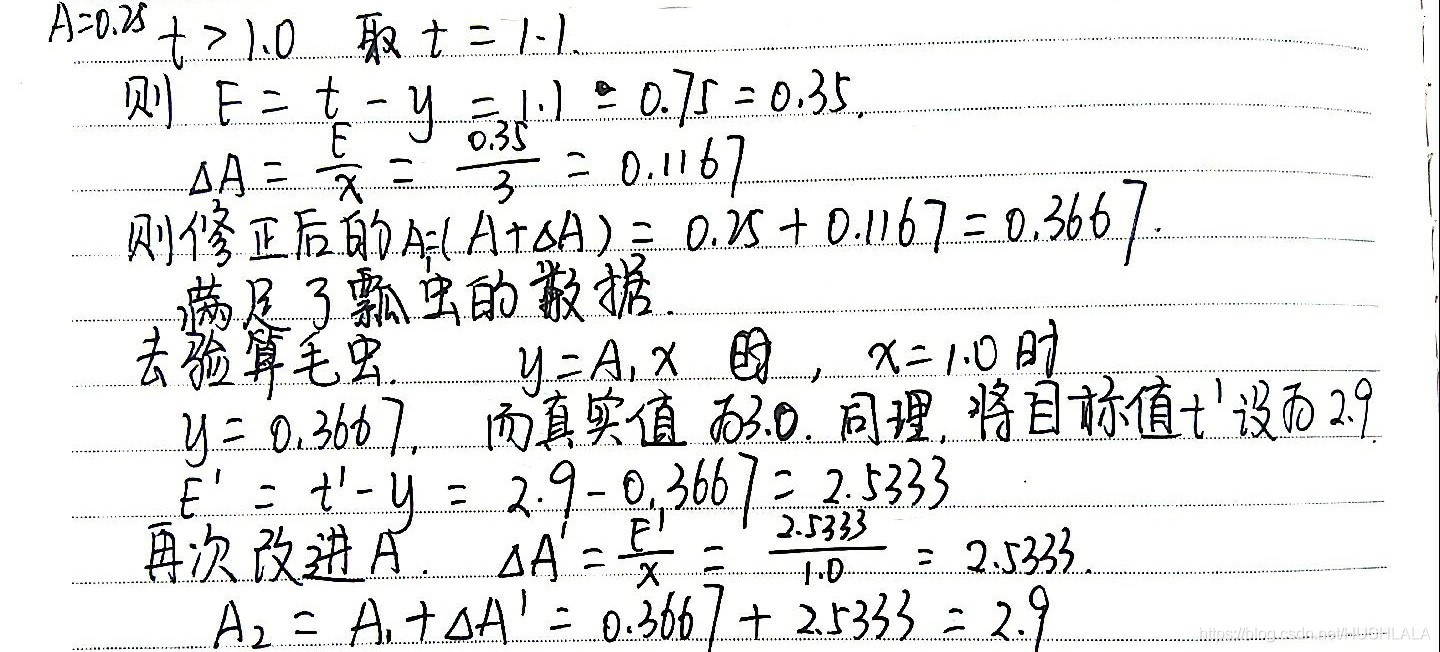 A=0.25 t > 1.0 取 t = 1.1.
则 E = t - y = 1.1 - 0.75 = 0.35.
ΔA = E/x = 0.35/3 = 0.1167
则修正后的A₁=(A+ΔA) = 0.25 + 0.1167 = 0.3667.
满足了瓢虫的数据.
去验算毛虫. y = A₁x 时, x = 1.0 时
y = 0.3667, 而真实值为3.0. 同理, 将目标值t'设为2.9.
E' = t' - y = 2.9 - 0.3667 = 2.5333
再次改进A. ΔA' = E'/x = 2.5333/1.0 = 2.5333.
A₂ = A₁ + ΔA' = 0.3667 + 2.5333 = 2.9
https://blog.csdn.net/HUSHLALA